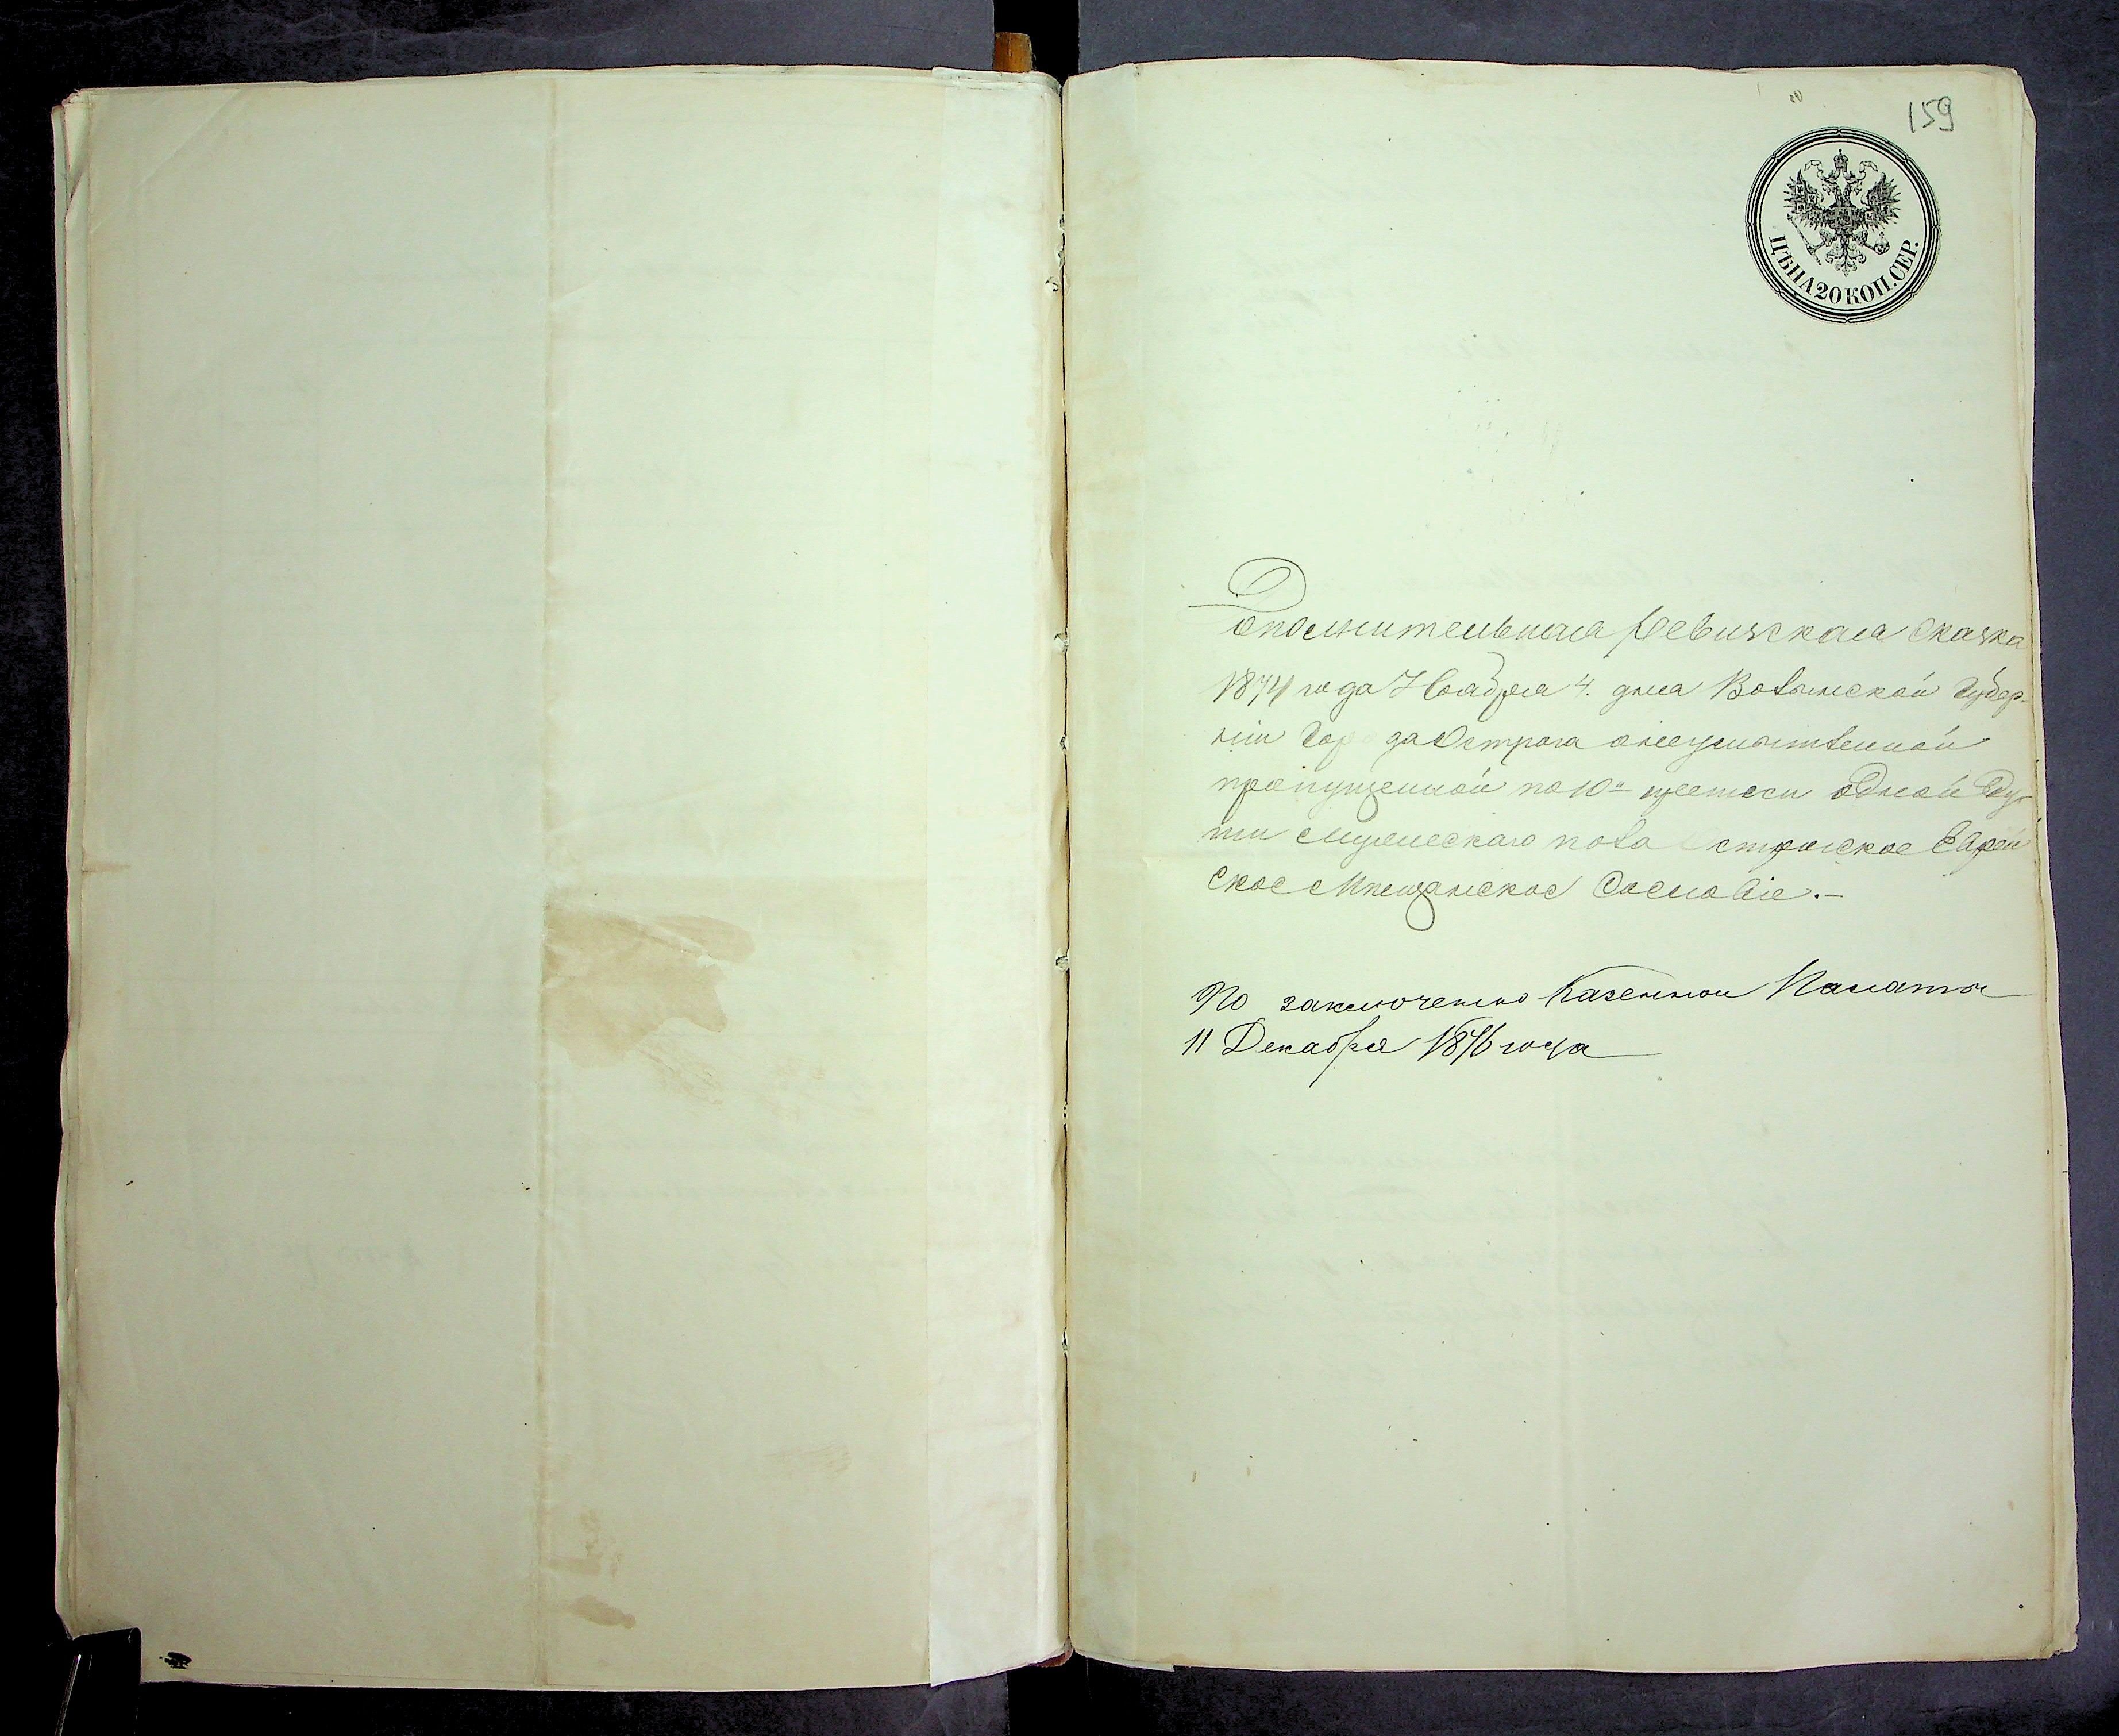 159
ЦѢНА 20 КОП. СЕР.
Дополнительная Ревизская Сказка
1874 года Ноября 4. дня Волынской Губер-
ніи Города Острога о неумышленной
пропущенной по 10й переписи одной Ду-
ши мужескаго пола Острожское Еврей
ское Мѣщанское Сословіе.—
По заключенію Казенной Палаты
11 Декабря 1876 года